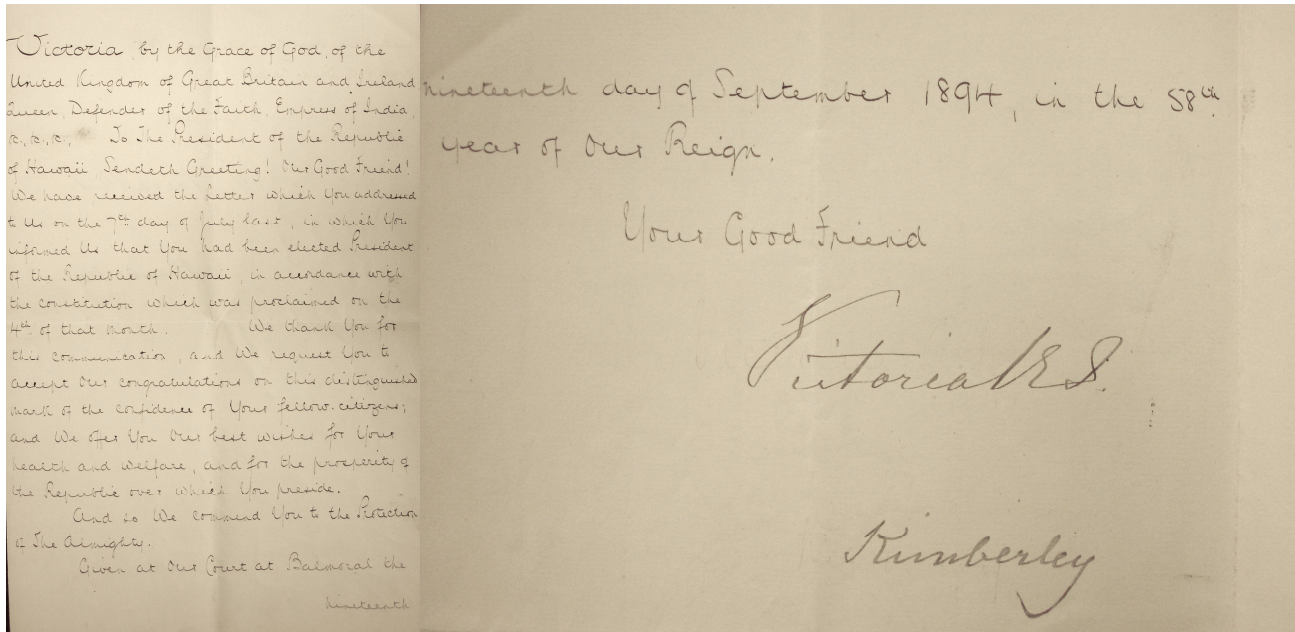 Victoria by the Grace of God, of the
United Kingdom of Great Britain and Ireland
Queen, Defender of the Faith, Empress of India,
&c., &c., &c., To The President of the Republic
of Hawaii, Sendeth Greeting! Our Good Friend!
We have received the Letter which You addressed
to Us on the 7th day of July last, in which You
informed Us that You had been elected President
of the Republic of Hawaii, in accordance with
the constitution which was proclaimed on the
4th of that month. We thank You for
this communication, and We request You to
accept Our congratulations on this distinguished
mark of the confidence of Your fellow-citizens;
and We offer You Our best wishes for Your
health and welfare, and for the prosperity of
the Republic over which You preside.
And so We commend You to the Protection
of The Almighty.
Given at Our Court at Balmoral the
nineteenth
nineteenth day of September 1894, in the 58th.
year of Our Reign.
Your Good Friend
Victoria R I.
Kimberley